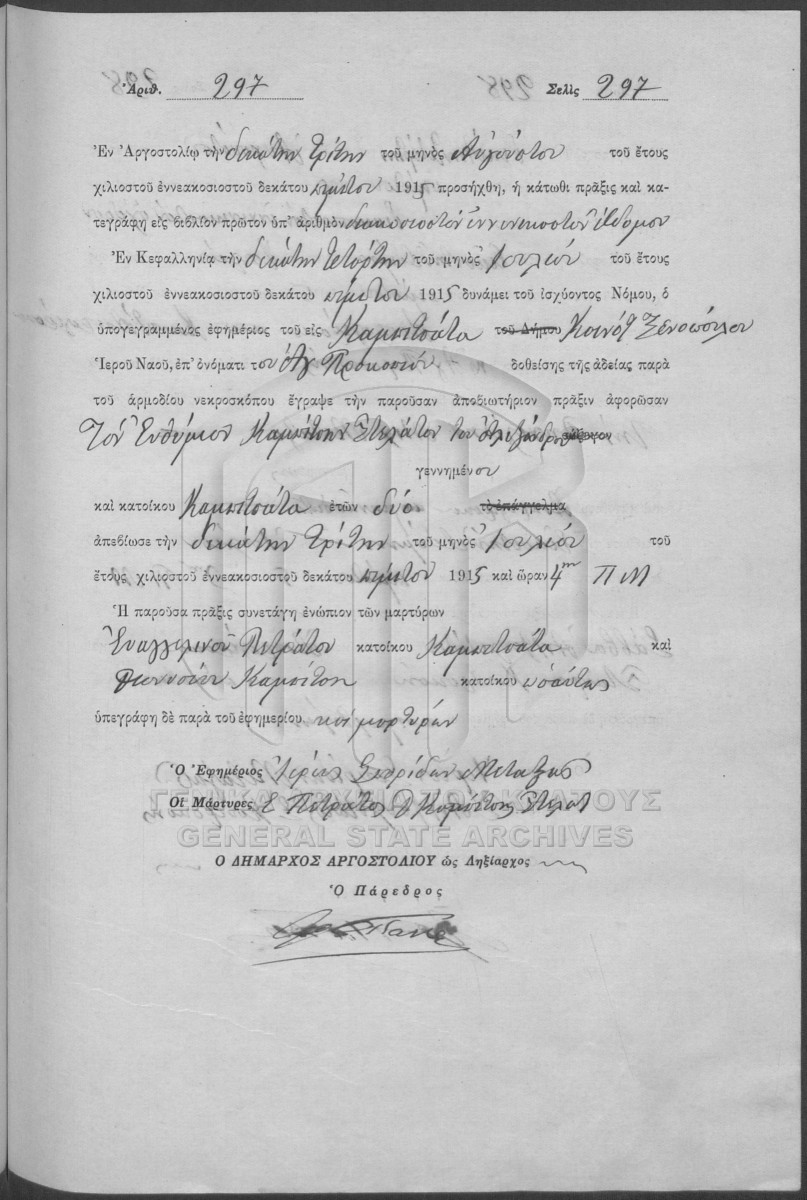 Ἀριθ. 297 Σελὶς 297
Ἐν Ἀργοστολίῳ τὴν δεκάτην τρίτην τοῦ μηνὸς Αὐγούστου τοῦ ἔτους
χιλιοστοῦ ἐννεακοσιοστοῦ δεκάτου πέμπτου 1915 προσήχθη, ἡ κάτωθι πρᾶξις καὶ κα-
τεγράφη εἰς βιβλίον πρῶτον ὑπ' ἀριθμὸν διακοσιοστὸν ἐννενηκοστὸν ἕβδομον
Ἐν Κεφαλληνίᾳ τὴν δεκάτην τετάρτην τοῦ μηνὸς Ἰουλίου τοῦ ἔτους
χιλιοστοῦ ἐννεακοσιοστοῦ δεκάτου πέμπτου 1915 δυνάμει τοῦ ἰσχύοντος Νόμου, ὁ
ὑπογεγραμμένος ἐφημέριος τοῦ εἰς Καμπιτσάτα τοῦ Δήμου Κοινότ
Ἱεροῦ Ναοῦ, ἐπ' ὀνόματι του Ἁγ Προκοπίου δοθείσης τῆς ἀδείας παρὰ
τοῦ ἁρμοδίου νεκροσκόπου ἔγραψε τὴν παροῦσαν ἀποβιωτήριον πρᾶξιν ἀφορῶσαν
Τὸν Εὐθύμιον Καμπίτσην Στελάτον του Ἀλεξάνδρου
γεννημένου
καὶ κατοίκου Καμπιτσάτα ἐτῶν δύο τὸ ἐπάγγελμα
ἀπεβίωσε τὴν δεκάτην τρίτην τοῦ μηνὸς Ἰουλίου τοῦ
ἔτους χιλιοστοῦ ἐννεακοσιοστοῦ δεκάτου πέμπτου 1915 καὶ ὥραν 4ην Π Μ
Ἡ παροῦσα πρᾶξις συνετάγη ἐνώπιον τῶν μαρτύρων
Ευαγγελινοῦ Πετράτου κατοίκου Καμπιτσάτα καὶ
Διονυσίου Καμπίτση κατοίκου ὡσαύτως
ὑπεγράφη δὲ παρὰ τοῦ ἐφημερίου καὶ μαρτύρων
Ὁ Ἐφημέριος Ἱερεὺς Σπυρίδων Μεταξᾶς
Οἱ Μάρτυρες Ε Πετράτος Δ Καμπίτσης Στελάτ
ΓΕΝΙΚΑ ΑΡΧΕΙΑ ΤΟΥ ΚΡΑΤΟΥΣ
GENERAL STATE ARCHIVES
Ο ΔΗΜΑΡΧΟΣ ΑΡΓΟΣΤΟΛΙΟΥ ὡς Ληξίαρχος
Ὁ Πάρεδρος